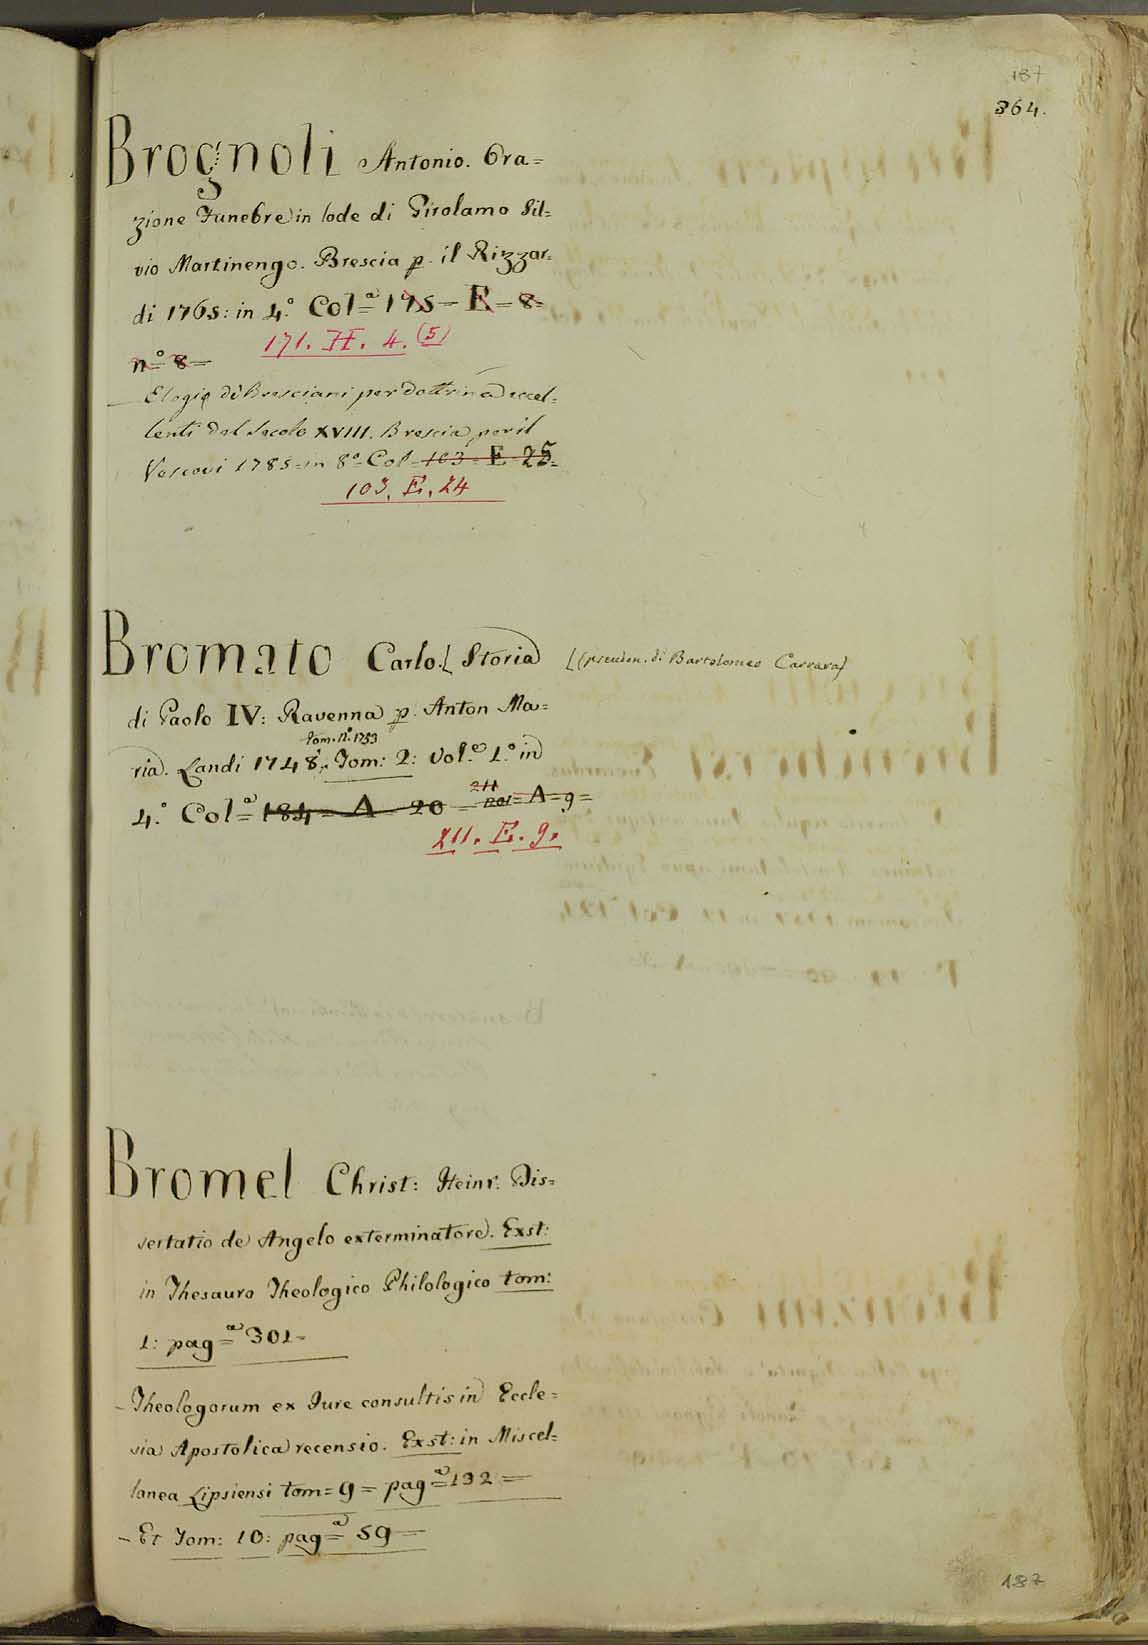 187
364.
Brognoli Antonio. Ora=
zione Funebre in lode di Girolamo Sil=
vio Martinengo. Brescia p. il Rizzar=
di 1765: in 4.° Col=ª 175 = E = 8=
171. H. 4. (5)
n=° 8=
— Elogio di Bresciani per dottrina eccel=
lenti del Secolo XVIII. Brescia per il
Vescovi 1785= in 8°= Col= 103= E= 25=
103. E. 24
Bromato Carlo.[ Storia [(pseudon. di Bartolomeo Carrara)
di Paolo IV: Ravenna p. Anton Ma=
tom. II.° 1753
ria. Landi 1748; Tom: 2: Vol.e 1.° in
211
4.° Col=ª 184= A = 20 = 201= A= 9=
211. E. 9.
Bromel Christ: Heinr. Dis=
sertatio de Angelo exterminatore. Exst:
in Thesauro Theologico Philologico tom:
1: pag=ª 301=
- Theologorum ex Jure consultis in Eccle=
sia Apostolica recensio. Exst: in Miscel=
lanea Lipsiensi tom= 9= pag=ª 132=
- Et Tom: 10: pag=ª 59=
187